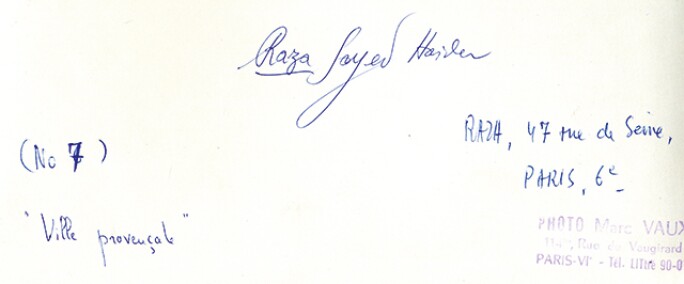 Raza Sayed Haider
RAZA, 47 rue de Seine,
PARIS, 6e
(No 7)
"Ville provençale"
PHOTO Marc VAUX
114bis, Rue de Vaugirard
PARIS-VIe - Tél. Littré 90-0